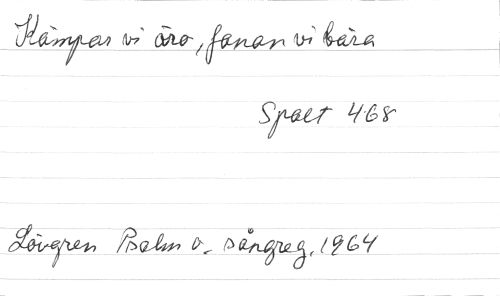 Kämpar vi äro, fanan vi bära
Spalt 468
Lövgren Psalm o. sångreg. 1964